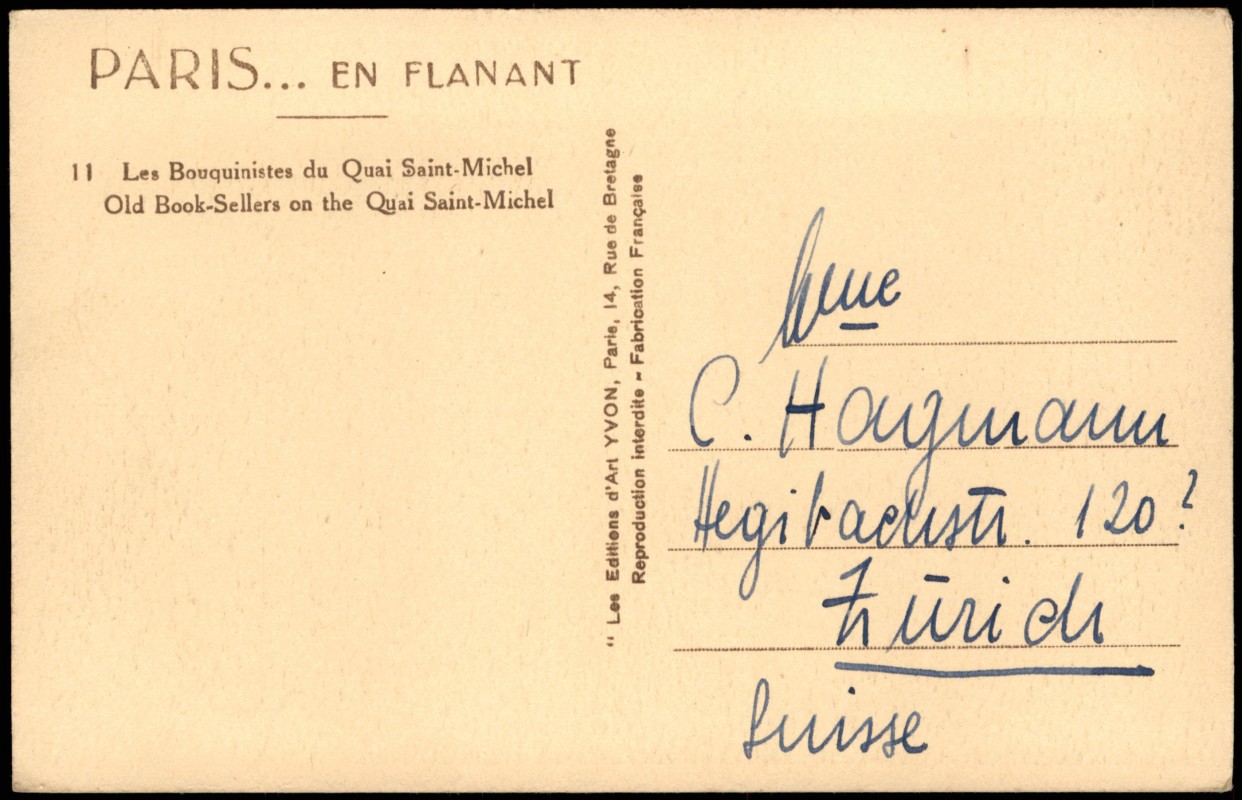 PARIS... EN FLANANT
11 Les Bouquinistes du Quai Saint-Michel
Old Book-Sellers on the Quai Saint-Michel
" Les Editions d'Art YVON, Paris, 14, Rue de Bretagne
Reproduction interdite - Fabrication Française
Mme
C. Hagmann
Hegibachstr. 120?
Zürich
Suisse